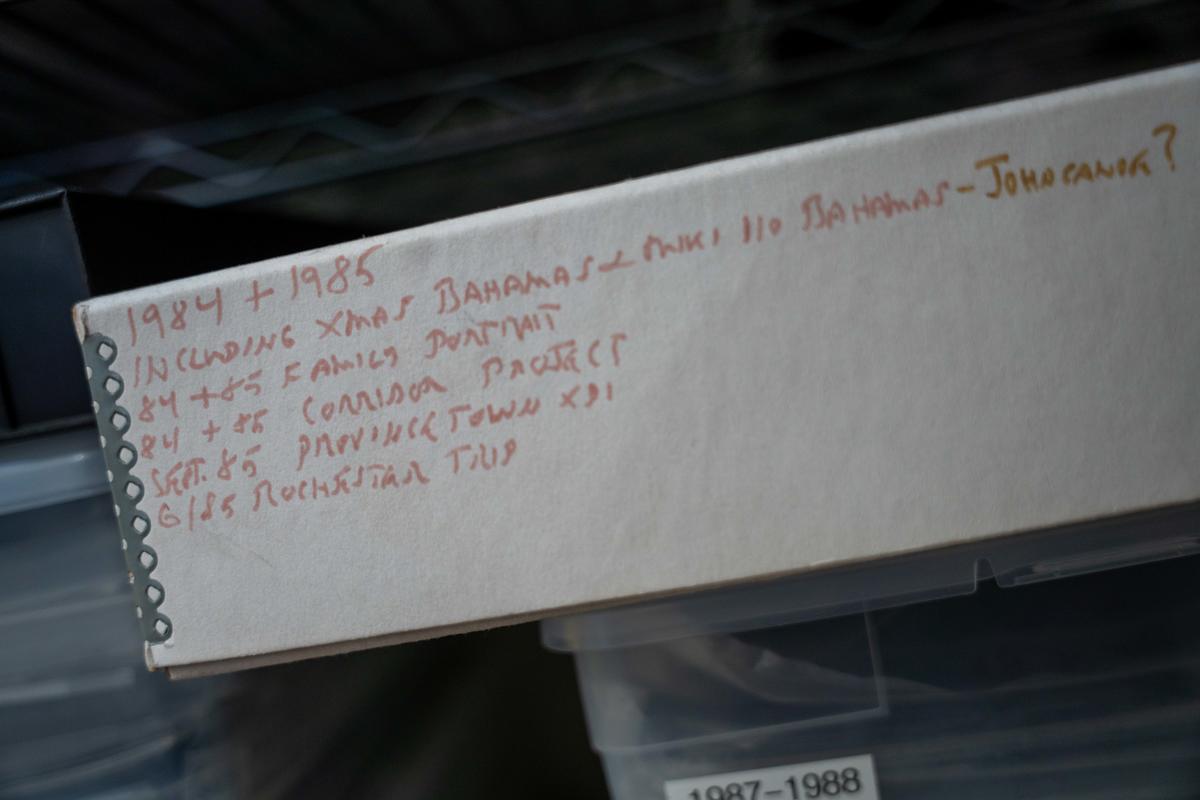 1984 + 1985
INCLUDING XMAS BAHAMAS + MIKI 110 BAHAMAS - JOHNCANOE?
84 + 85 FAMILY PORTRAIT
84 + 85 CORRIDOR PROJECT
SEPT. 85 PROVINCETOWN
6/85 ROCHESTER TRIP
1987-1988